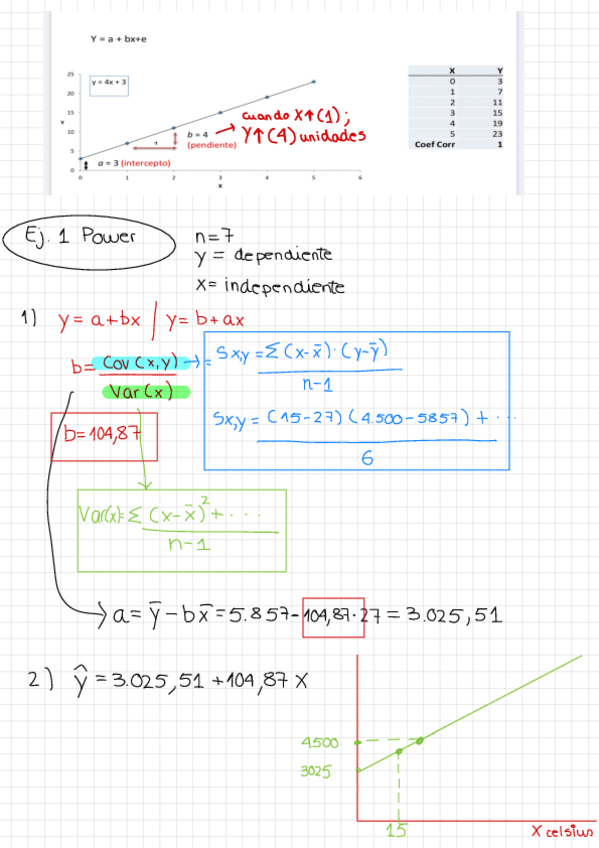 Y = a + bx+e
25
y = 4x + 3
20
15
Y
10
5
0
0
1
2
3
4
5
6
X
1
b = 4
(pendiente)
a = 3 (intercepto)
cuando X↑(1);
Y↑(4) unidades
X Y
0 3
1 7
2 11
3 15
4 19
5 23
Coef Corr 1
Ej. 1 Power
n=7
y = dependiente
x= independiente
1) y = a+bx / y = b+ax
b= Cov(x,y) / Var(x)
= Sx,y = Σ(x-x̄)·(y-ȳ) / n-1
Sx,y = (15-27)(4.500-5857)+··· / 6
b=104,87
Var(x)= Σ(x-x̄)²+··· / n-1
a= ȳ-bx̄=5.857-104,87·27 = 3.025,51
2) ŷ = 3.025,51 +104,87 X
4.500
3025
15
X celsius